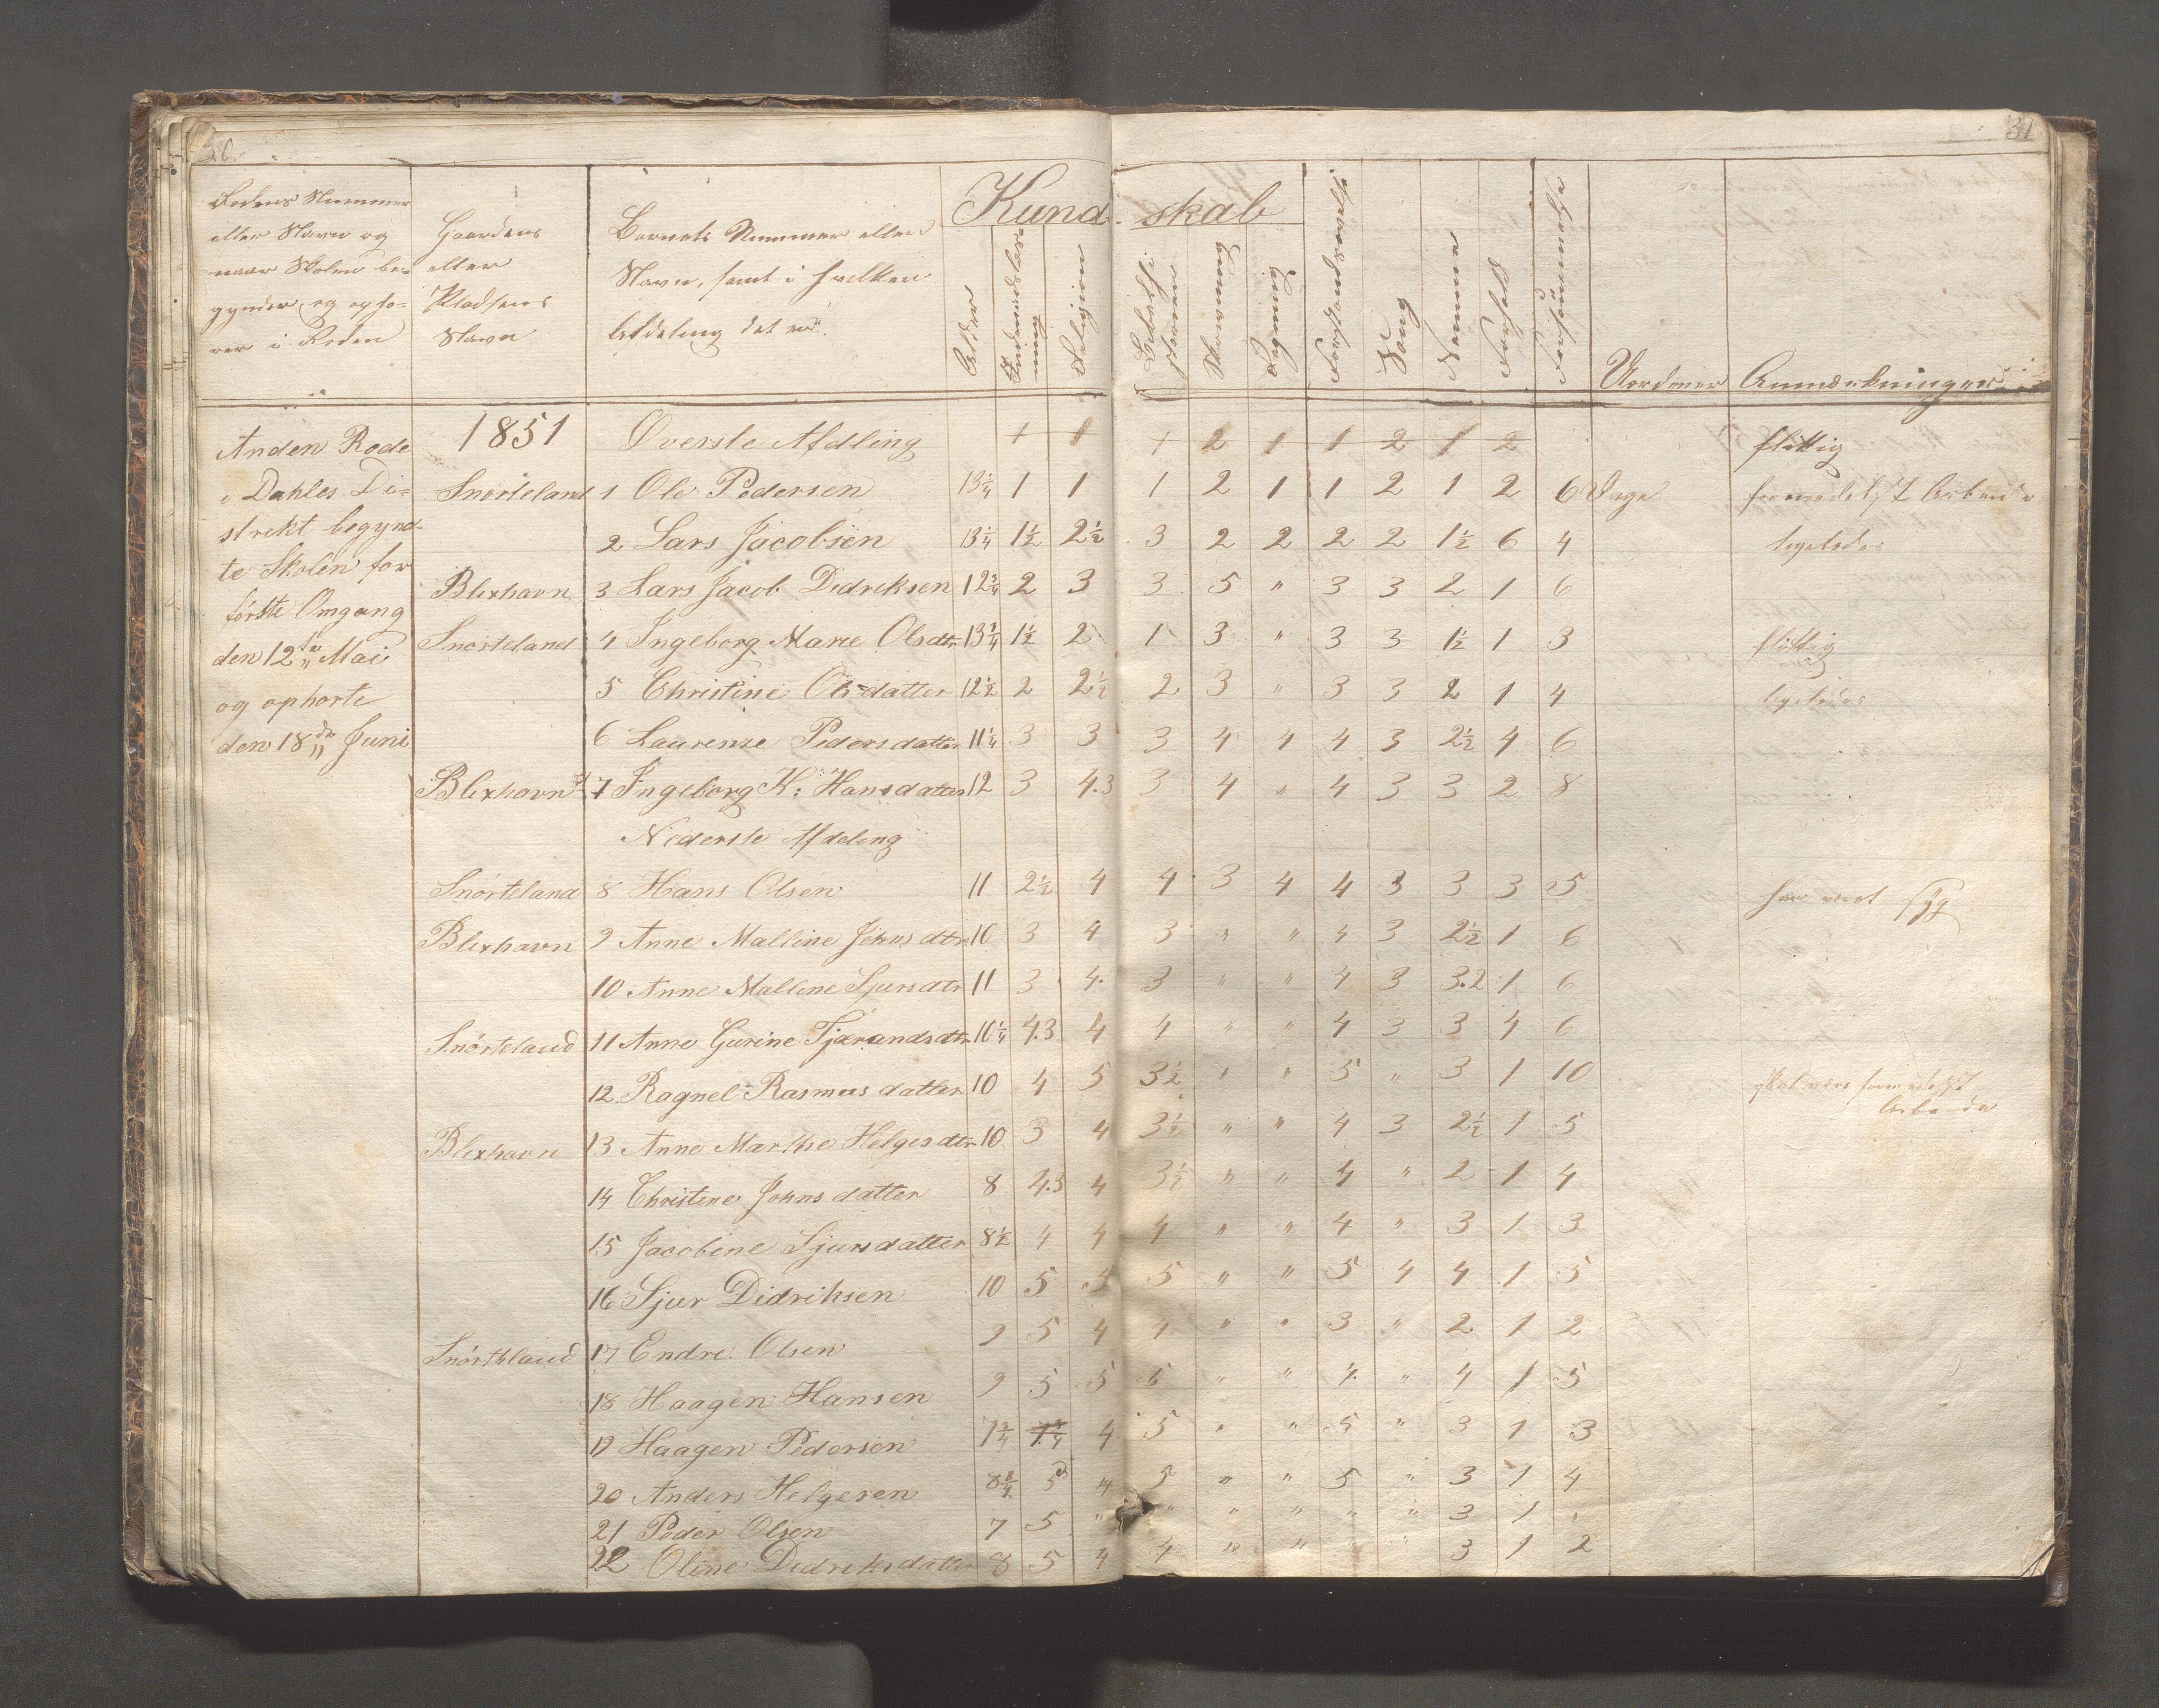 30
31
Rodens Nummer
eller Navn og
naar Skolen be-
gynder og ophø-
rer i Roden
Gaardens
eller
Pladsens
Navn
Barnets Nummer eller
Navn, samt i hvilken
Afdeling det er.
Kund- skab
Alder
Indenadslæs-
ning
Religion
Udvortes
Skrivning
Regning
Forstandsøvelse
Sang
Nemme
Forhold
Forsømmelse
Anmærkninger
Anden Rode
i Dahles Di-
strikt begynd-
te Skolen for
første Omgang
den 12te Mai
og ophorte
den 18de Juni
1851 Overste Afdling 1 1 1 2 1 1 2 1 2 flittig
Snorteland 1 Ole Pedersen 13¼ 1 1 1 2 1 1 2 1 2 6 Dage formedelst Arbeide
2 Lars Jacobsen 13¼ 1½ 2½ 3 2 2 2 2 1½ 6 4 ligeledes
Blixhavn 3 Lars Jacob Didriksen 12¾ 2 3 3 5 " 3 3 2 1 6
Snorteland 4 Ingeborg Marie Olsdtr 13¾ 1½ 2 1 3 " 3 3 1½ 1 3 flittig
5 Christine Olsdatter 12½ 2 2½ 2 3 " 3 3 2 1 4 ligeledes
6 Laurense Pedersdatter 11¼ 3 3 3 4 4 4 3 2½ 4 6
Blixhavn 7 Ingeborg K: Hansdatter 12 3 4.3 3 4 " 4 3 3 2 8
Nederste Afdeling
Snørteland 8 Hans Olsen 11 2½ 4 4 3 4 4 3 3 3 25 har været syg
Blixhavn 9 Anne Malline Johnsdtr 10 3 4 3 " " 4 3 2½ 1 6
10 Anne Malline Sjursdtr 11 3 4 3 " " 4 3 3.2 1 6
Snørteland 11 Anne Gurine Tjærandsdtr 10¼ 4.3 4 4 " " 4 3 3 4 6
12 Ragnel Rasmusdatter 10 4 5 3½ " " 5 " 3 1 10 formedelst
Arbeide
Blixhavn 13 Anne Marthe Helgesdtr 10 3 4 3½ " " 4 3 2½ 1 5
14 Christine Johnsdatter 8 4.3 4 3½ " " 4 " 2 1 4
15 Jacobine Sjursdatter 8½ 4 4 4 " " 4 " 3 1 3
16 Sjur Didriksen 10 5 5 5 " " 5 4 4 1 5
Snørteland 17 Endre Olsen 9 5 4 4 " " 3 " 2 1 2
18 Haagen Hansen 9 5 5 5 " " 4 " 4 1 5
19 Haagen Pedersen 7¾ 4 5 " " 5 " 3 1 3
20 Anders Helgesen 8¾ 5 " 5 " " 5 " 3 1 4
21 Peder Olsen 7 5 " " " " " " 3 1 "
22 Oline Didriksdatter 8 5 4 4 " " " " 3 1 2